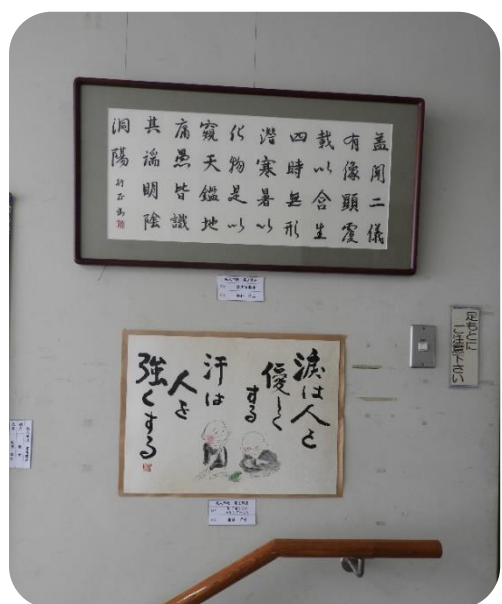 盖聞二儀
有像顕覆
載以含生
四時無形
潜寒暑以
化物是以
窺天鑑地
庸愚皆識
其端明陰
洞陽
涙は人を
優しく
する
汗は
人を
強くする
足もとに
ご注意下さい